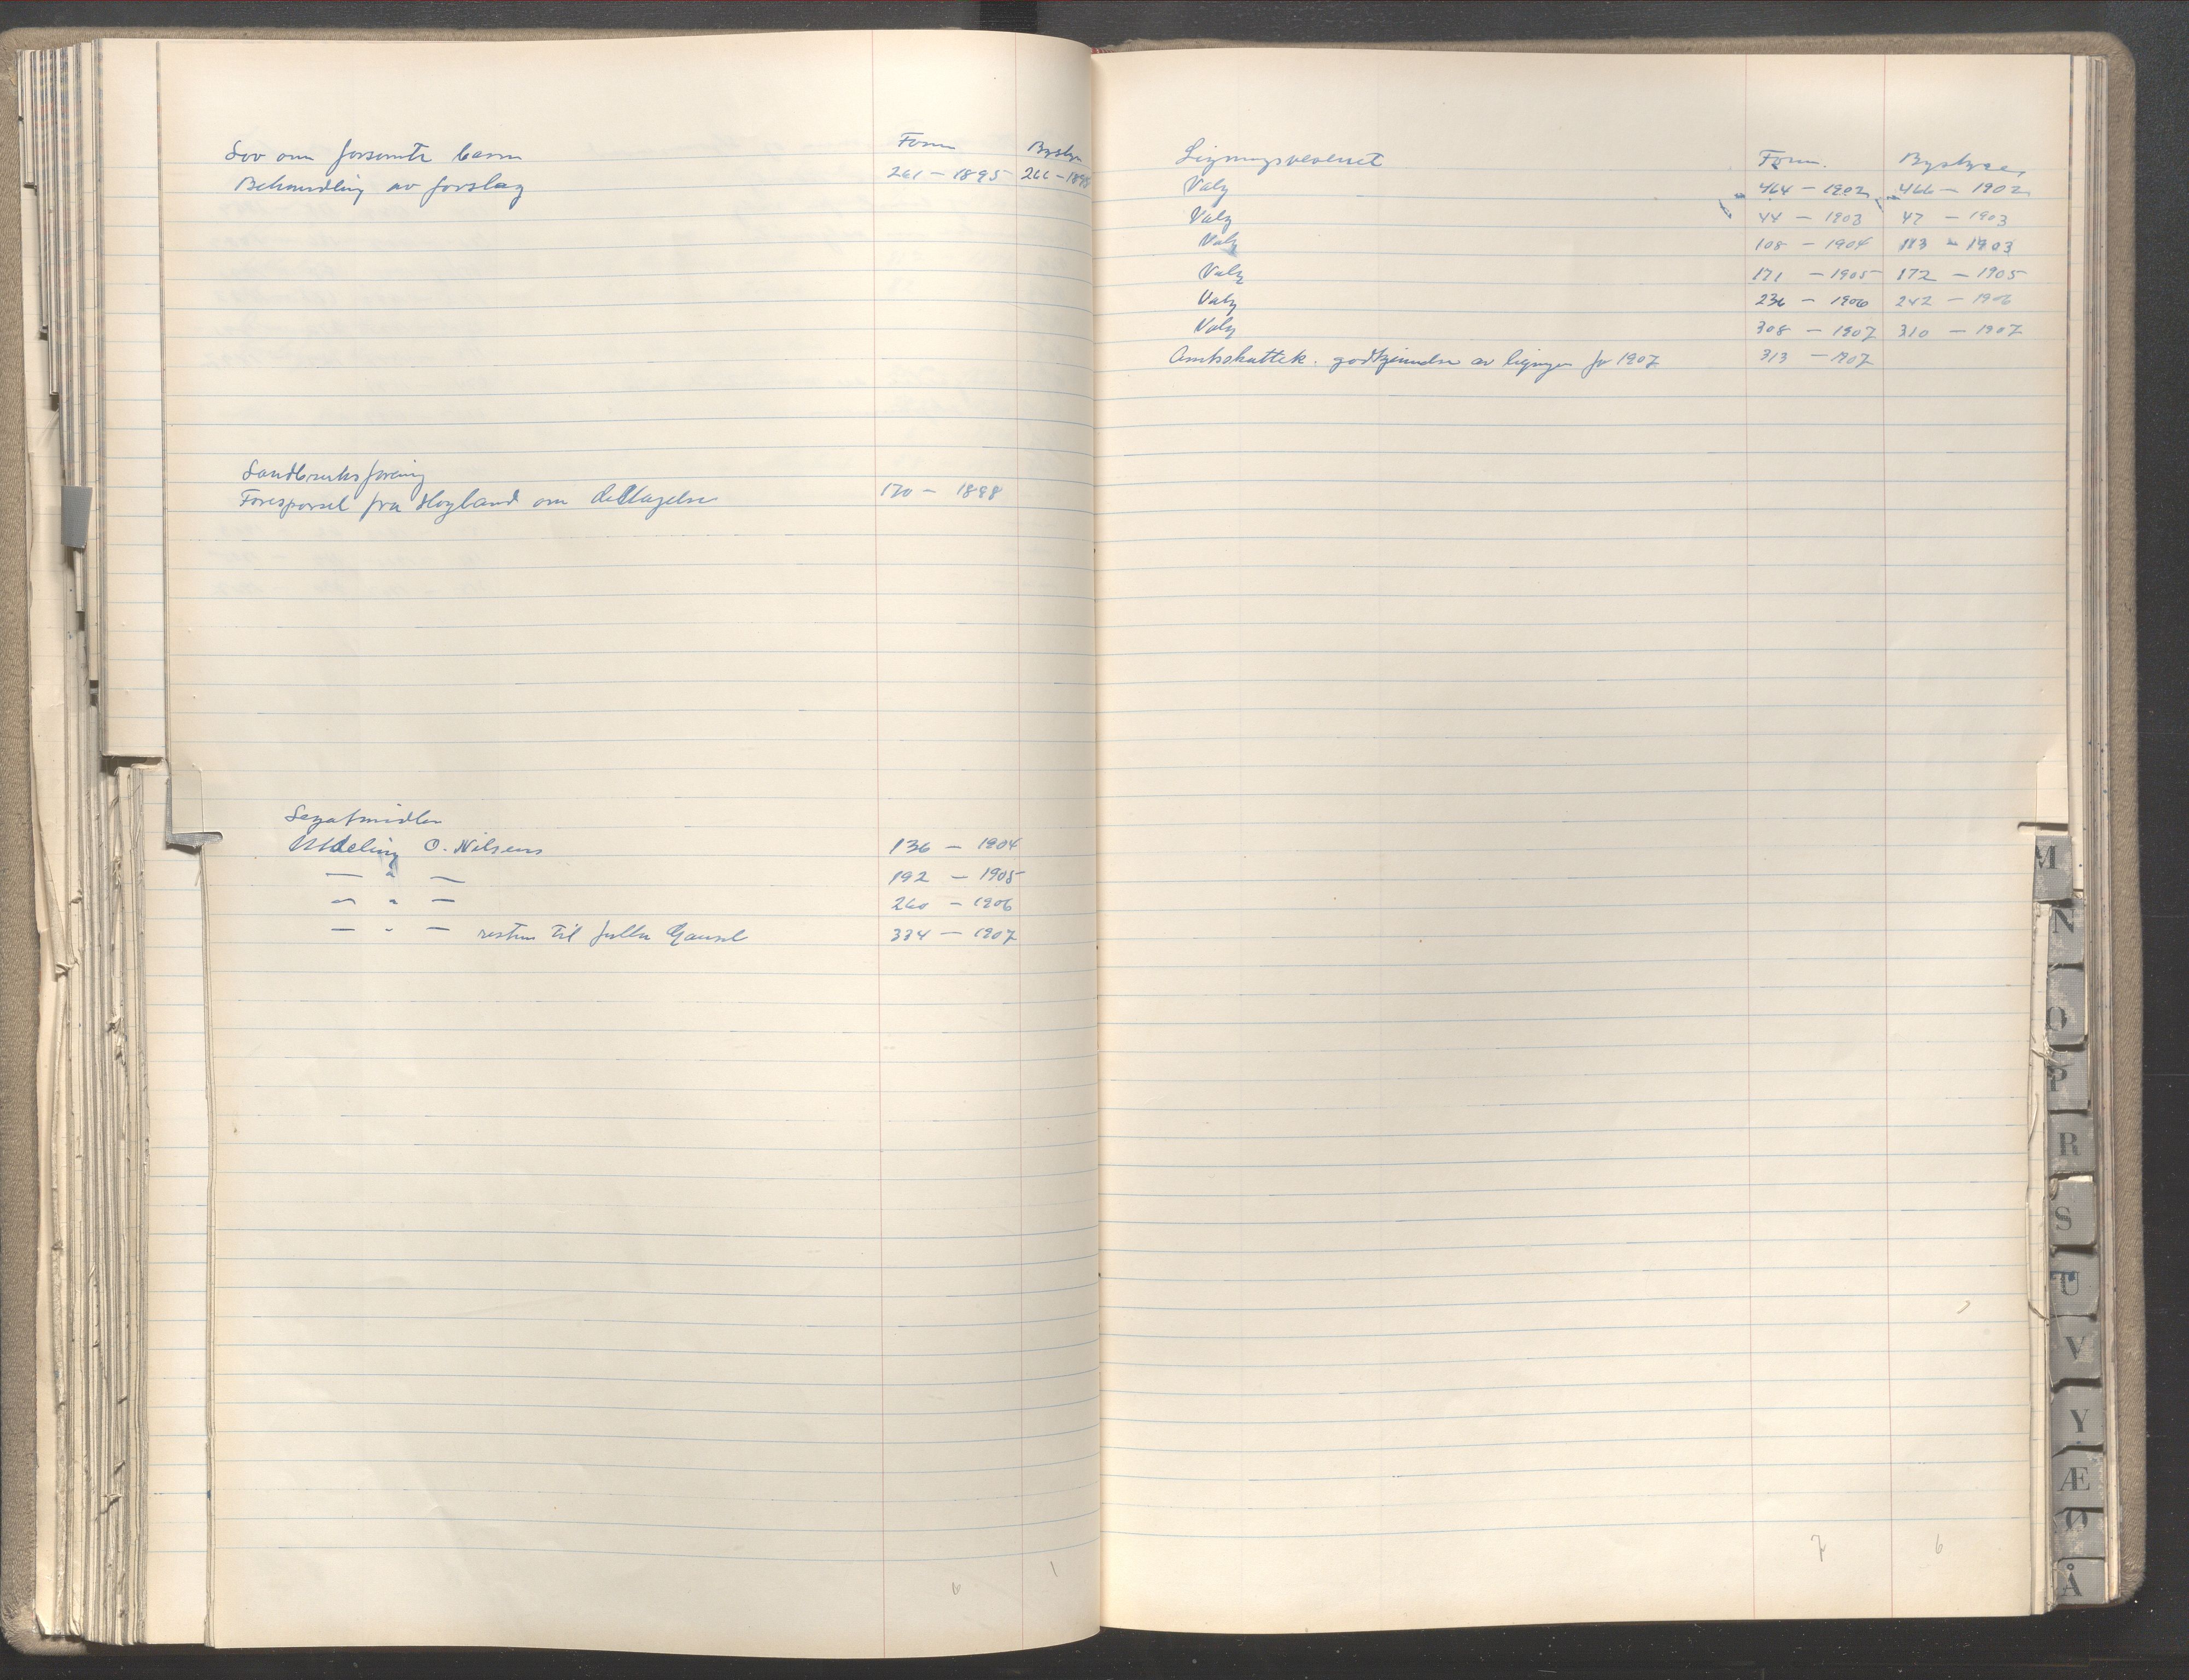 Form Bystyr
Lov om forsomte barn
Behandling av forslag 261 - 1895 266 - 1895
Landbruksforening
Forespørsel fra Høyland om deltagelse 170 - 1898
Legatmidler
Utdeling O. Nilsens 136 - 1904
— " — 192 - 1905
— " — 260 - 1906
— " — resten til Gausel 334 - 1907
6 1
Ligningsvesenet Form. Bystyre
Valg 464 - 1902 466 - 1902
Valg 44 - 1903 47 - 1903
Valg 108 - 1904 113 - 1903
Valg 171 - 1905 172 - 1905
Valg 236 - 1906 242 - 1906
Valg 308 - 1907 310 - 1907
Amtsskattek. godkjennelse av ligningen for 1907 313 - 1907
7 6
M
N
O
P
R
S
T
U
V
Y
Æ
Ø
Å